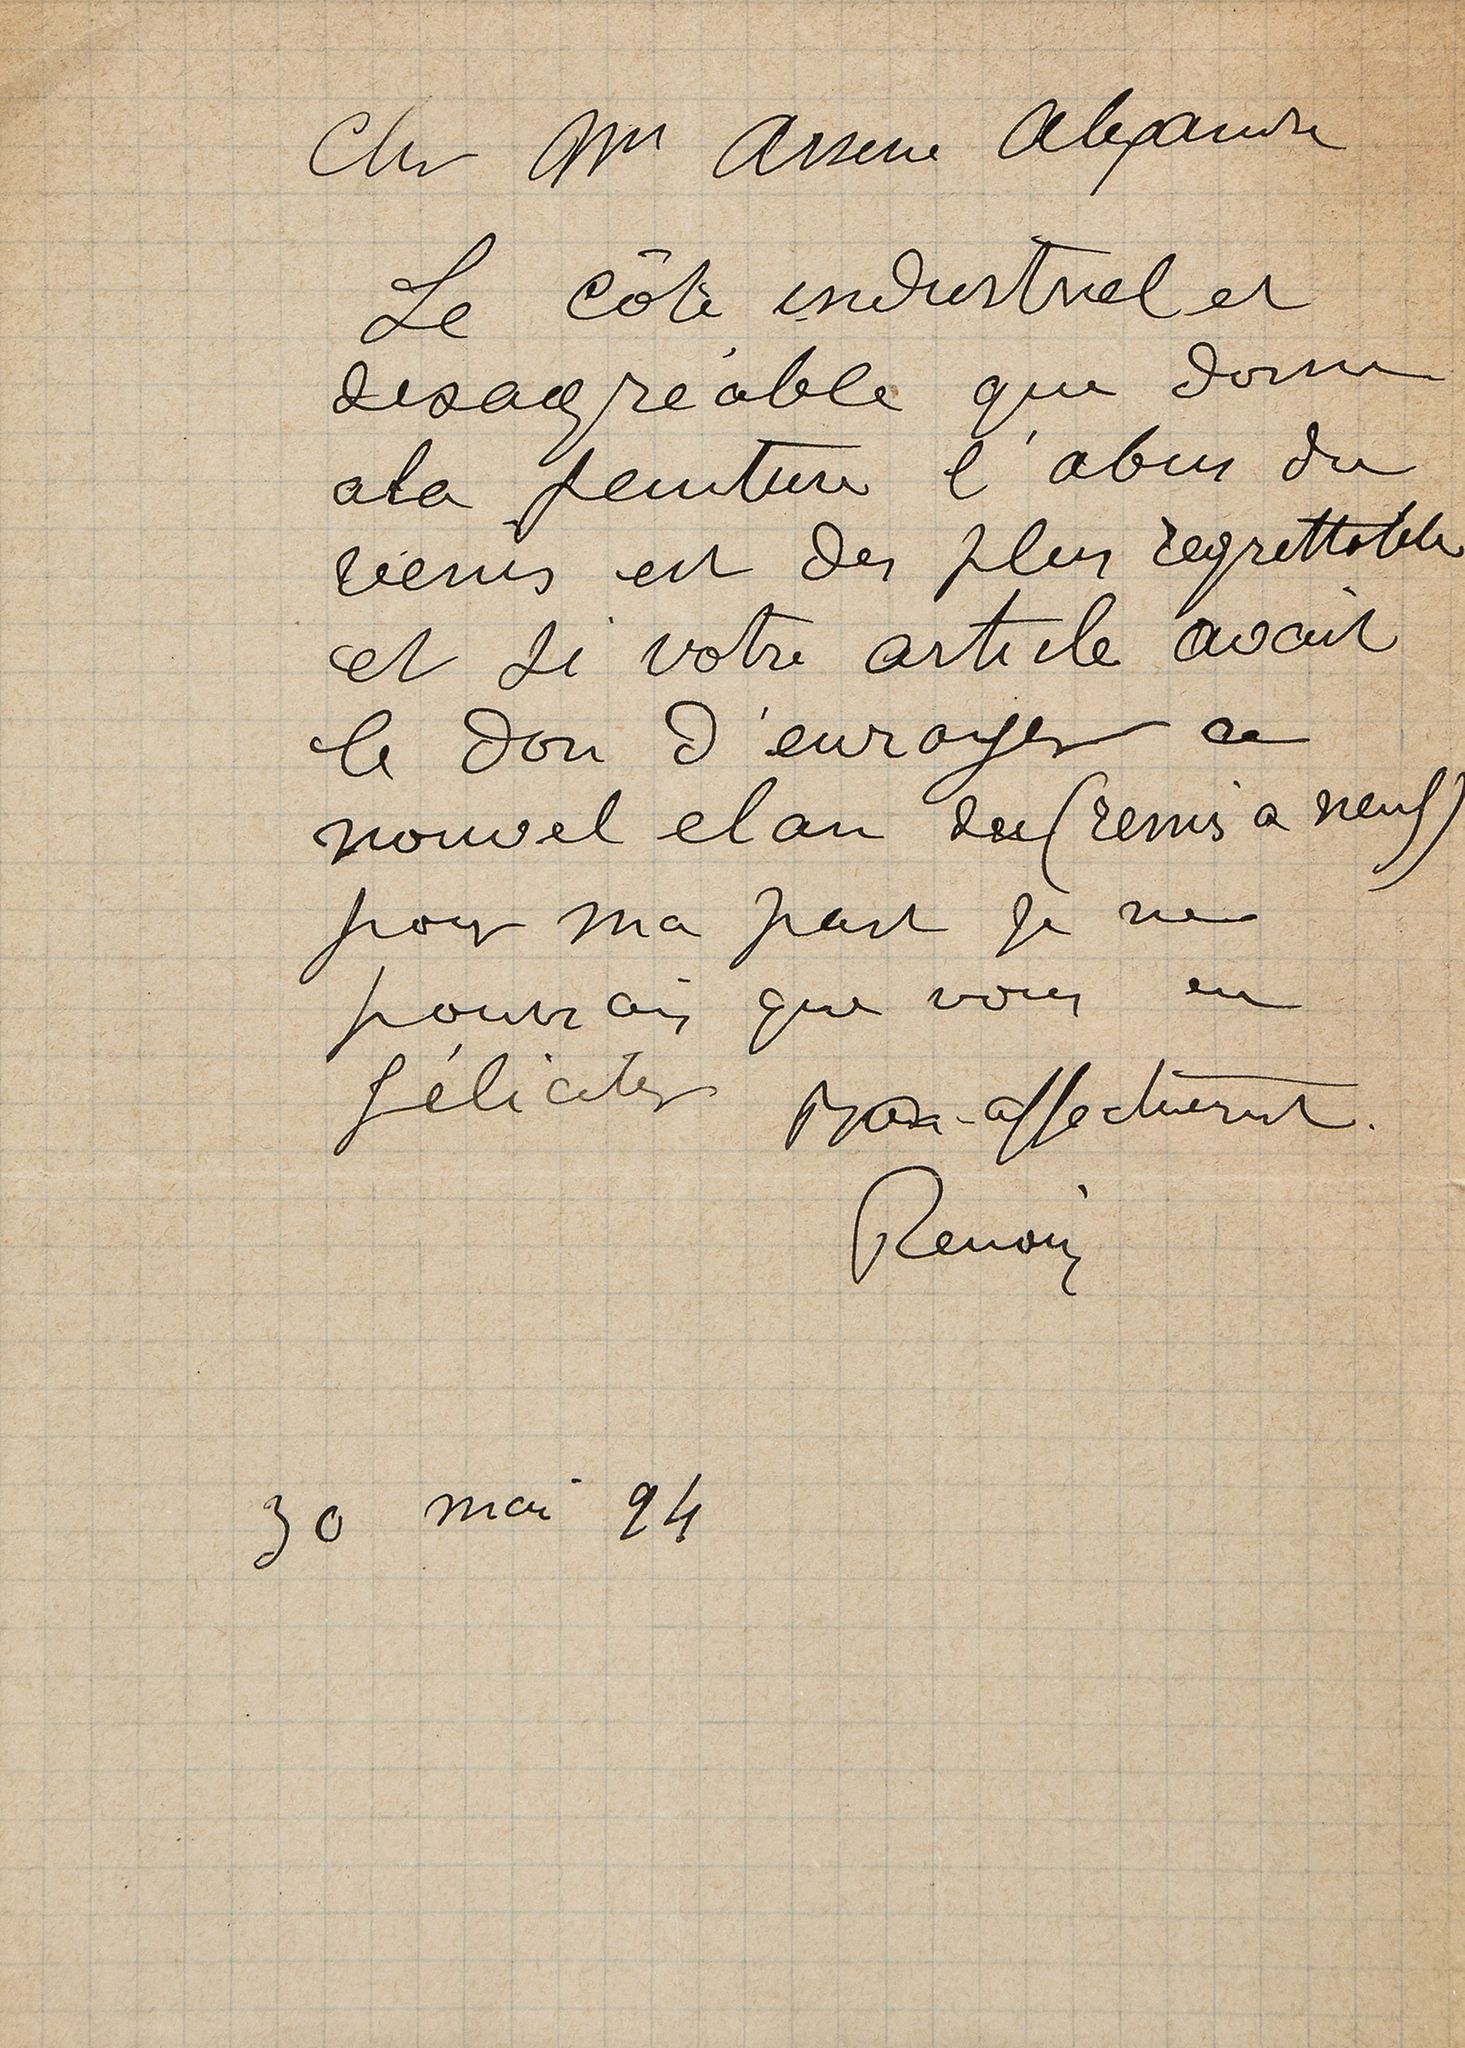 Cher Mr Arsene Alexandre
Le côté industriel et
desagréable que donne
a la peinture l'abus du
vernis est des plus regrettable
et si votre article avait
le don d'enrayer ce
nouvel elan du (remis a neuf)
pour ma part je ne
pourrais que vous en
féliciter
affectuement.
Renoir
30 mai 94